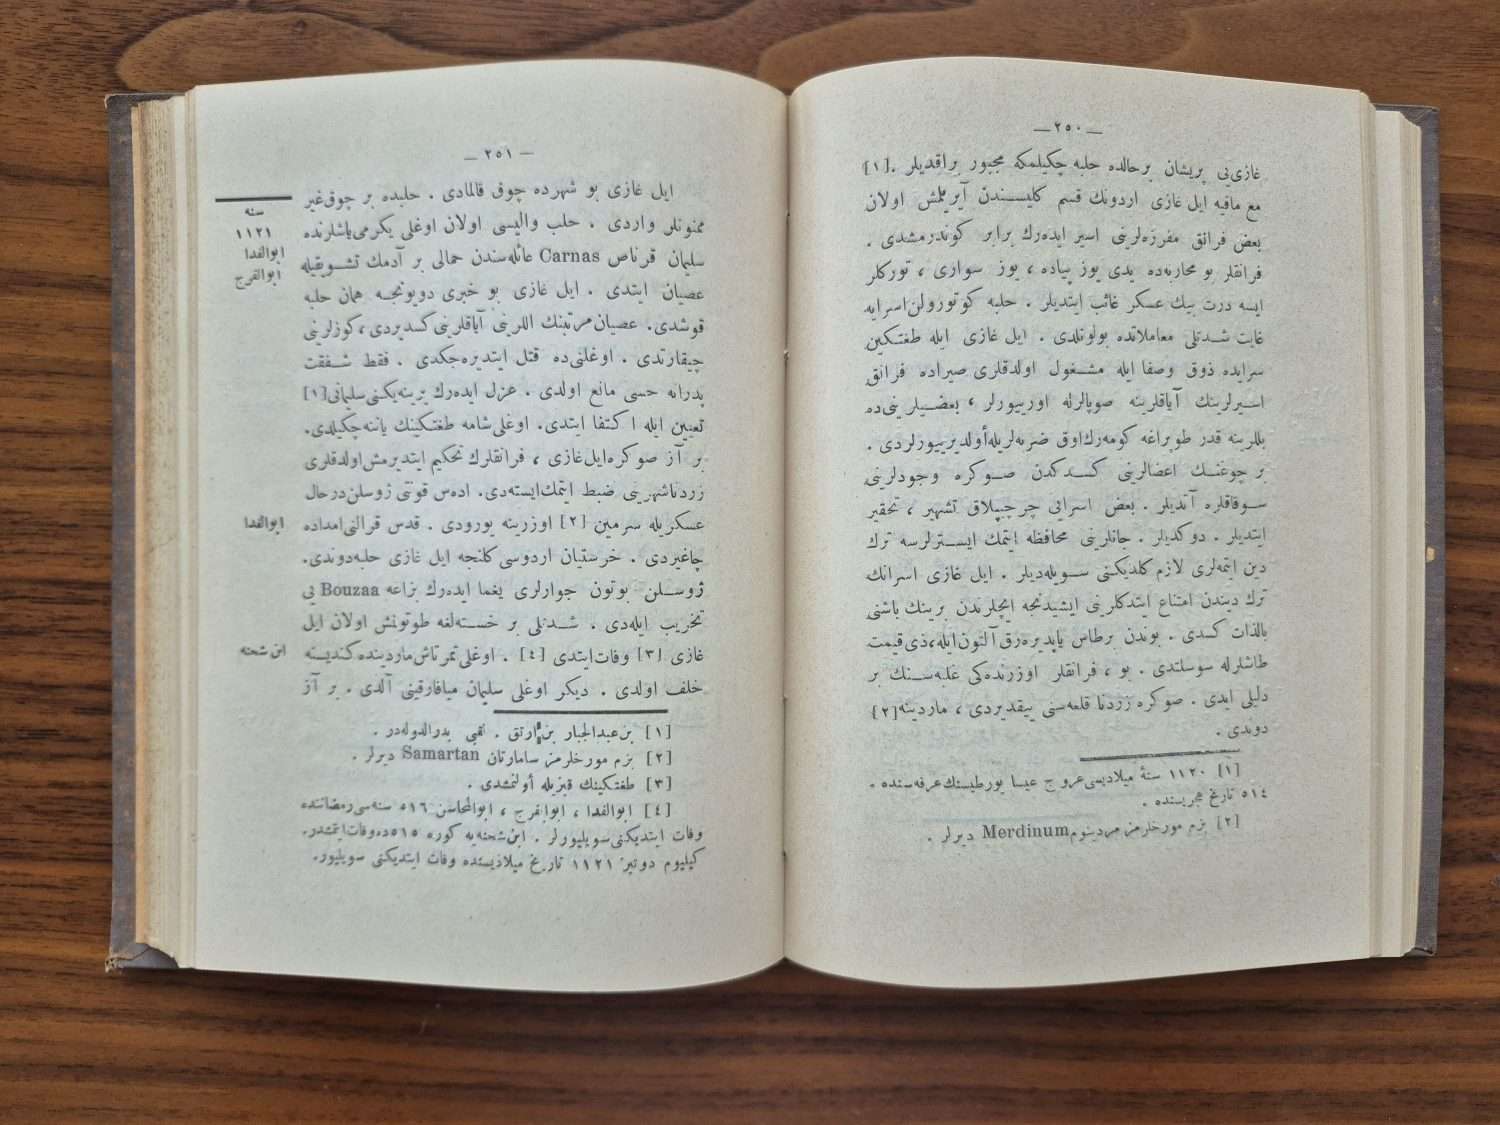 — ٢٥٠ —
غازی‌یی پریشان برحالده حلبه چكیلمكه مجبور براقدیلر . [١]
مع مافیه ایل غازی اردونك قسم كلیسندن آیریلمش اولان
بعض فرانق مفرزه‌لرینی اسیر ایده‌رك برابر كوندرمشدی .
فرانقلر بو محاربه‌ده یدی یوز پیاده ، یوز سواری ، توركلر
ایسه درت بیك عسكر غائب ایتدیلر . حلبه كوتورولن اسرایه
غایت شدتلی معاملاتده بولونلدی . ایل غازی ایله طغتكین
سرایده ذوق وصفا ایله مشغول اولدقلری صیراده فرانق
اسیرلرینك آیاقلرینه صوپالرله اوریبورلر ، بعضیلرینی‌ده
بللرینه قدر طوپراغه كومه‌رك اوق ضربه‌لریله أولدیرییورلردی .
بر چوغنك اعضالرینی كسدكدن صوكره وجودلرینی
سوقاقلره آتدیلر . بعض اسرایی چرچیپلاق تشهیر ، تحقیر
ایتدیلر . دوكدیلر . جانلرینی محافظه ایتمك ایسترلرسه ترك
دین ایتمه‌لری لازم كلدیكنی سویله‌دیلر . ایل غازی اسرانك
ترك دیندن امتناع ایتدكلرینی ایشیدنجه ایچلرندن برینك باشنی
بالذات كسدی . بوندن برطاس یاپدیره‌رق آلتون ایله ، ذی قیمت
طاشلرله سوسلتدی . بو ، فرانقلر اوزرنده‌كی غلبه‌سنك بر
دلیلی ایدی . صوكره زردنا قلعه‌سنی ییقدیردی ، ماردینه [٢]
دوندی .
[١] ١١٢٠ سنهٔ میلادیسی عروج عیسا یورطیسنك عرفه‌سنده .
٥١٤ تاریخ هجریسنده .
[٢] بزم مورخلرمز مردینوم Merdinum دیرلر .
— ٢٥١ —
ایل غازی بو شهرده چوق قالمادی . حلبده بر چوق غیر
ممنونلر واردی . حلب والیسی اولان اوغلی یكرمی یاشلرنده
سلیمان قرناص Carnas عائله‌سندن حمالی بر آدمك تشویقیله
عصیان ایتدی . ایل غازی بو خبری دویونجه همان حلبه
قوشدی . عصیان مرتبنك اللرینی آیاقلرینی كسدیردی ، كوزلرینی
چیقارتدی . اوغلنی ده قتل ایتدیره‌جكدی . فقط شفقت
پدرانه حسی مانع اولدی . عزل ایده‌رك یرینه یكنی سلیمانی [١]
تعیین ایله اكتفا ایتدی . اوغلی شامه طغتكینك یاننه چكیلدی .
بر آز صوكره ایل غازی ، فرانقلرك تحكیم ایتدیرمش اولدقلری
زردنا شهرینی ضبط ایتمك ایسته‌دی . ادەس قونتی ژوسلن درحال
عسكریله سرمین [٢] اوزرینه یورودی . قدس قرالنی امداده
چاغیردی . خرستیان اردوسی كلنجه ایل غازی حلبه دوندی .
ژوسلن بوتون جوارلری یغما ایده‌رك بزاعه Bouzaa یی
تخریب ایله‌دی . شدتلی بر خسته‌لغه طوتولمش اولان ایل
غازی [٣] وفات ایتدی [٤] . اوغلی تمرتاش ماردینده كندیسنه
خلف اولدی . دیكر اوغلی سلیمان میافارقینی آلدی . بر آز
سنه
١١٢١
ابوالفدا
ابوالفرج
ابوالفدا
ابن شحنه
[١] بن عبدالجبار بن ارتق . لقبی بدرالدوله‌در .
[٢] بزم مورخلرمز سامارتان Samartan دیرلر .
[٣] طغتكینك قیزیله أولنمشدی .
[٤] ابوالفدا ، ابوالفرج ، ابوالمحاسن ٥١٦ سنه‌سی رمضاننده
وفات ایتدیكنی سویلیورلر . ابن شحنه‌یه كوره ٥١٥ ده وفات ایتمشدر .
كیلیوم دوتیر ١١٢١ تاریخ میلادیسنده وفات ایتدیكنی سویلیور .